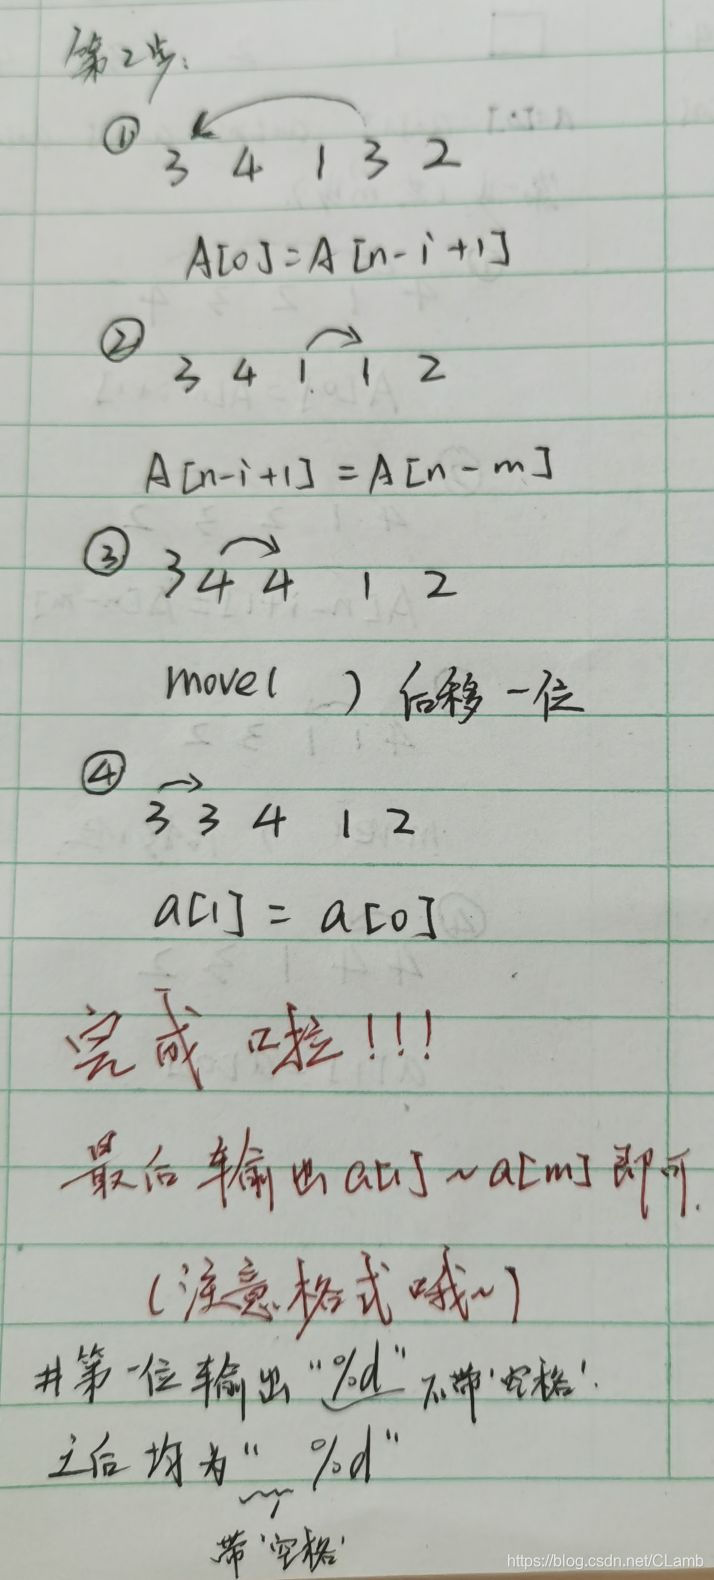 第2步:
① 3 4 1 3 2
A[0]=A[n-i+1]
② 3 4 1 1 2
A[n-i+1]=A[n-m]
③ 3 4 4 1 2
move( ) 后移一位
④ 3 3 4 1 2
a[1] = a[0]
完成啦!!!
最后输出a[1]~a[m]即可.
(注意格式哦~)
#第一位输出"%d"不带'空格'.
之后均为" %d"
带'空格'
https://blog.csdn.net/CLamb